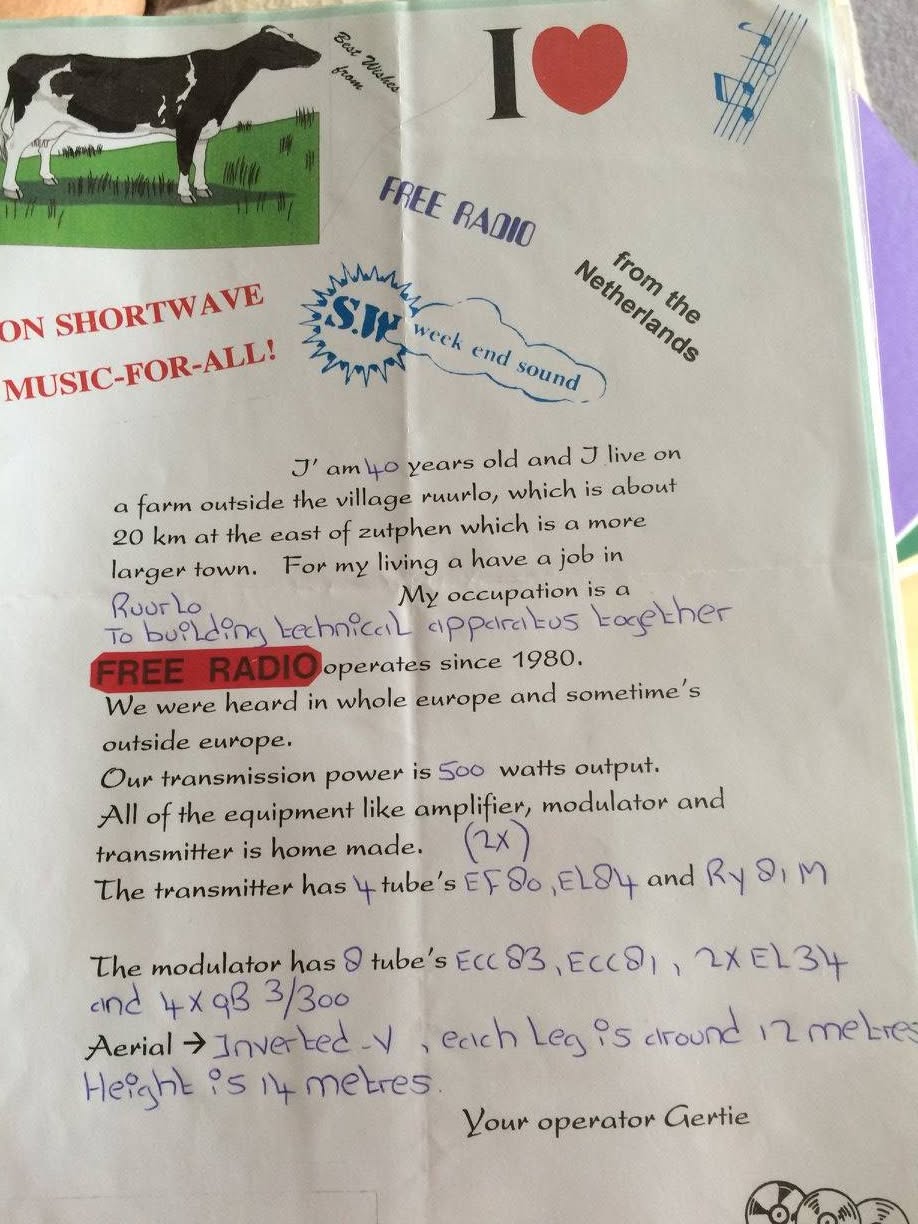 Best Wishes
from
I
FREE RADIO
from the
Netherlands
ON SHORTWAVE
MUSIC-FOR-ALL!
S.W
week end sound
I' am 40 years old and I live on
a farm outside the village ruurlo, which is about
20 km at the east of zutphen which is a more
larger town. For my living a have a job in
Ruurlo My occupation is a
To building technical apparatus together
FREE RADIO operates since 1980.
We were heard in whole europe and sometime's
outside europe.
Our transmission power is 500 watts output.
All of the equipment like amplifier, modulator and
transmitter is home made. (2x)
The transmitter has 4 tube's EF80, EL84 and Ry 81 M
The modulator has 8 tube's Ecc 83, ECC81, 2X EL34
and 4X QB 3/300
Aerial → Inverted -V, each Leg is around 12 metres
Height is 14 metres.
Your operator Gertie